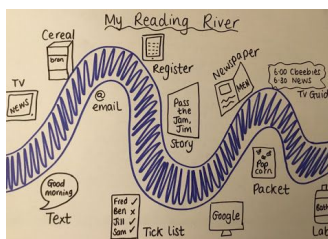 My Reading River
Cereal
bran
TV
NEWS
@
email
Register
Pass
the
Jam,
Jim
Story
Newspaper
MEN
6:00 Cbeebies
6:30 NEWS
TV Guid
Pop
corn
Packet
Good
morning
Text
Fred ✓
Ben x
Jill ✓
Sam ✓
Tick list
Google
Lab